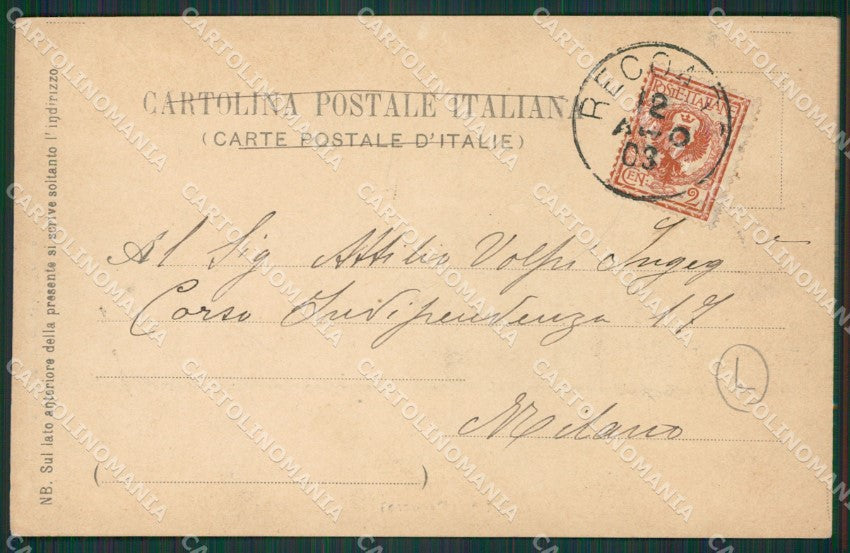 CARTOLINA POSTALE ITALIANA
(CARTE POSTALE D'ITALIE)
RECOA
12
AGO
03
POSTE ITALIANE
CEN. 2
Al Sig Attilio Volpi Ingeg
Corso Indipendenza 17
Milano
L
NB. Sul lato anteriore della presente si scrive soltanto l'indirizzo.
CARTOLINOMANIA